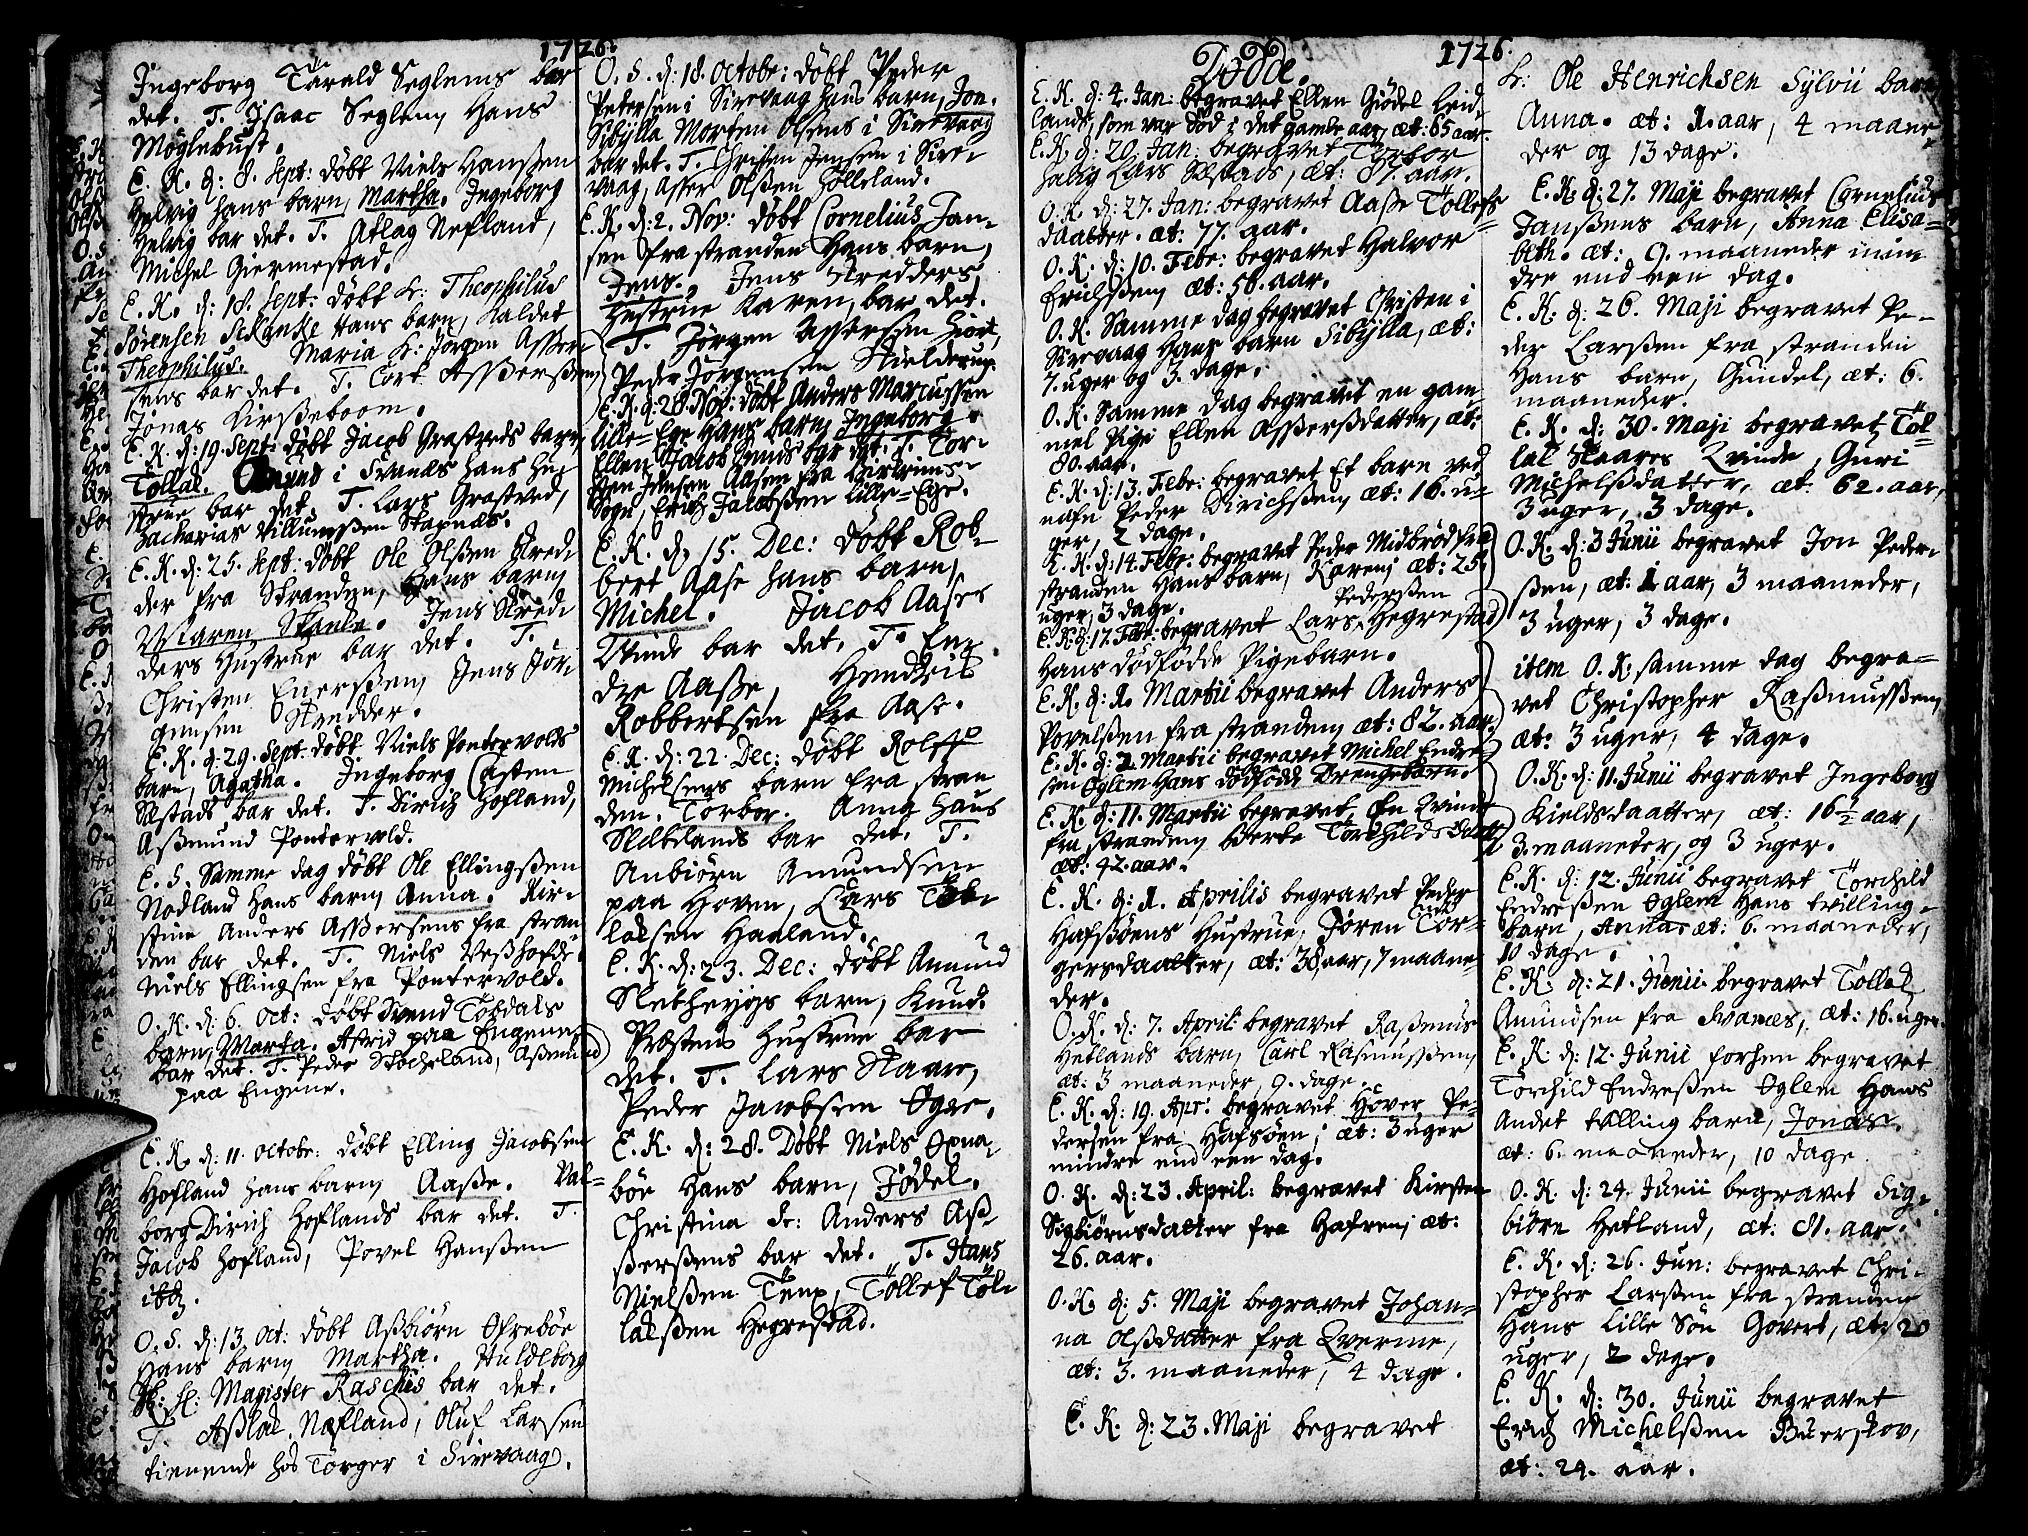 1726.
Ingeborg Tarald Seglems bar
det. T. Isaac Seglem, Hans
Møglebust.
E. K. d: 8. Sept: døbt Niels Hanssen
Helvig hans barn, Martha. Ingeborg
Helvig bar det. T. Atlag Nefland,
Michel Giermestad.
E. K. d: 18. Sept: døbt Hr: Theophilus
Sørensen Schanke Hans barn, kaldet
Theophilus. Maria Hr: Jørgen Asser-
sens bar det. T. Cort Asserssen,
Jonas Kirsseboom.
E. K. d: 19. Sept: døbt Jacob Grastveds barn,
Tollal. Amund i Svanes hans hu-
strue bar det. T. Lars Grastved,
Zacharias Villumssen Stapnes.
E. K. d: 25. Sept: døbt Ole Olssen Skred-
der fra Stranden, Hans barn,
Maren. Jens Skred-
ders Hustrue bar det. T.
Christen Enerssen, Jens Jør-
gensen Skredder.
E. K. d: 29. Sept: døbt Niels Pontervolds
barn, Agatha. Ingeborg Casten
Sæstads bar det. T. Dirich Hofland,
Assmund Pontervold.
E. S. Samme dag døbt Ole Ellingssen
Nodland hans barn, Anna. Kir-
stine Anders Assersens fra stran
den bar det. T. Niels
Niels Ellingsen fra Pontervold.
O. K. d: 6. Oct: døbt Svend Tofdals
barn, Marta. Astrid paa Eugene
bar det. T. Peder Stocheland, Assmund
paa Eugene.
E. K. d: 11. Octobr: døbt Elling Jacobsen
Hofland hans barn, Aasse. Val-
borg Dirich Hoflands bar det. T.
Jacob Hofland, Povel Hanssen
ibd.
O. S. d: 13. Oct: døbt Assbiørn Ofrebøe
Hans barn, Martha. Huldeborg
Sl: Magister Raschis bar det.
T. Asslac Nofland, Oluf Larsen
tienende hos Torger i Sirevaag.
O. S. d: 18. Octobr: døbt Peder
Petersen i Sirevaag hans barn, Jon.
Sibylla Morten Olsens i Sirevaag
bar det. T. Christen Jensen i Sire-
vaag, Asser Olssen Holleland.
E. K. d: 2. Nov: døbt Cornelius Jan-
sen fra stranden Hans barn,
Jens. Jens Skredders
Hustrue Karen, bar det.
T. Jørgen Assersen Hiort,
Peder Jørgensen Skielderup.
E. K. d: 28. Nov: døbt Anders Marcussen
Lille-Ege Hans barn, Ingeborg.
Ellen Jacob Lunds bar det. T. Tor-
sten Jensen Aasen fra
Sogn, Erich Jacobssen Lille-Ege.
E. K. d. 15. Dec: døbt Rob-
bert Aase hans barn,
Michel. Jacob Aases
Qvinde bar det, T. En-
dre Aasse, Hendrik
Robbertsen fra Aase.
E. K. d: 22. Dec: døbt Rolff
Michelsens barn fra stran
den. Torbor. Anna Hans
Sletelands bar det. T.
Anbiørn Amundsen
paa Hoven, Lars
lalsen Haaland.
E. K. d: 23. Dec: døbt Amund
Sletheyjgs barn, Knud.
Præstens Hustrue bar
det. T. Lars Staare,
Peder Jacobsen Ogne.
E. K. d: 28. Døbt Niels Oxna-
bøe Hans barn, Jødel.
Christina Hr: Anders As-
sersens bar det. T. Hans
Nielssen Teng, Tollef Tol-
lalssen Hegrestad.
Døde. 1726.
E. K. d: 4. Jan: begravet Ellen Giødel Leid-
lands, som var død i det gamle aar, æt: 65 aar.
E. K. d: 20. Jan: begravet Torbor
Salig Lars Sæstads, æt: 87. aar.
O. K. d: 27. Jan: begravet Aasse Tollefs
daatter. æt: 77. aar.
O. K. d: 10. Febr: begravet Halvor
Erichssen, æt: 50. aar.
O. K. Samme dag begravet Christen i
Sirevaag Hans barn Sibylla, æt:
7. uger og 3. dage.
O. K. Samme dag begravet en gam-
mel Pige Ellen Asserssdatter, æt:
80. aar.
E. K. d: 13. Febr: begravet Et barn ved
nafn Peder Dirichssen, æt: 16. u-
ger, 2 dage.
E. K. d: 14. Febr: begravet Peder Midbrød fra
stranden Hans barn, Karen, æt: 25.
uger, 3 dage.
E. K. d: 17. Febr: begravet Lars Pederssen Hegrestad
Hans dødfødde Pigebarn.
E. K. d: 1. Martii begravet Anders
Povelssen fra stranden, æt: 82. aar.
E. K. d: 2. Martii begravet Michel Endre-
sen Øglem Hans dødfødde Drengebarn.
E. K. d: 11. Martii begravet En Qvinde
fra stranden Berte Torchildsdatt
æt: 42. aar.
E. K. d: 1. Aprilis begravet Peder
Hafssøens Hustrue, Søren Tor-
gersdaatter, æt: 38 aar, 7 maane-
der.
O. K. d: 7. April: begravet Rasmus
Hetlands barn, Carl Rasmussen,
æt: 3 maaneder, 9. dage.
E. K. d: 19. Apr: begravet Høver Pe-
dersen fra Hafsøen, æt: 3 uger
mindre end een dag.
O. K. d: 23. April: begravet Kirsten
Sigbiørnsdatter fra Hafren, æt:
26. aar.
O. K. d: 5. Maji begravet Johan-
na Olssdatter fra Qverme,
æt: 3. maaneder, 4 dage.
E. K. d: 23. Maji begravet
Hr: Ole Henrichsen Sylvii barn
Anna. æt: 1. aar, 4 maane-
der og 13 dage.
E. K. d: 27. Maji begravet Cornelius
Janssens barn, Anna Elisa-
beth. æt: 9. maaneder min-
dre end een dag.
E. K. d: 26. Maji begravet Pe-
der Larssen fra stranden
Hans barn, Gundel, æt: 6.
maaneder.
E. K. d: 30. Maji begravet Tol-
lal Staares Qvinde, Guri
Michelssdatter, æt: 62. aar,
3 uger, 3 dage.
O. K. d: 3 Junii begravet Jon Peder-
ssen, æt: 1 aar, 3 maaneder,
3 uger, 3 dage.
item O. K. samme dag begra-
vet Christopher Rassmussen,
æt: 3 uger, 4 dage.
O. K. d: 11. Junii begravet Ingeborg
Kieldsdaatter, æt: 16 1/2 aar,
3. maaneder, og 3 uger.
E. K. d: 12. Junii begravet Torchild
Endressen Øglem Hans tvilling-
barn, Anna. æt: 6. maaneder,
10 dage.
E. K. d: 21. Junii begravet Tollal
Amundsen fra Svanes, æt: 16. uger.
E. K. d: 12. Junii forhen begravet
Torchild Endressen Øglem Hans
Andet tvilling barn, Jonas.
æt: 6. maaneder, 10 dage.
O. K. d: 24. Junii begravet Sig-
biørn Hetland, æt: 81. aar.
E. K. d: 26. Jun: begravet Chri-
stopher Larssen fra stranden
Hans lille Søn Govert, æt: 20
uger, 2 dage.
E. K. d: 30. Junii begravet
Erich Michelssen Buerskov,
æt: 24. aar.